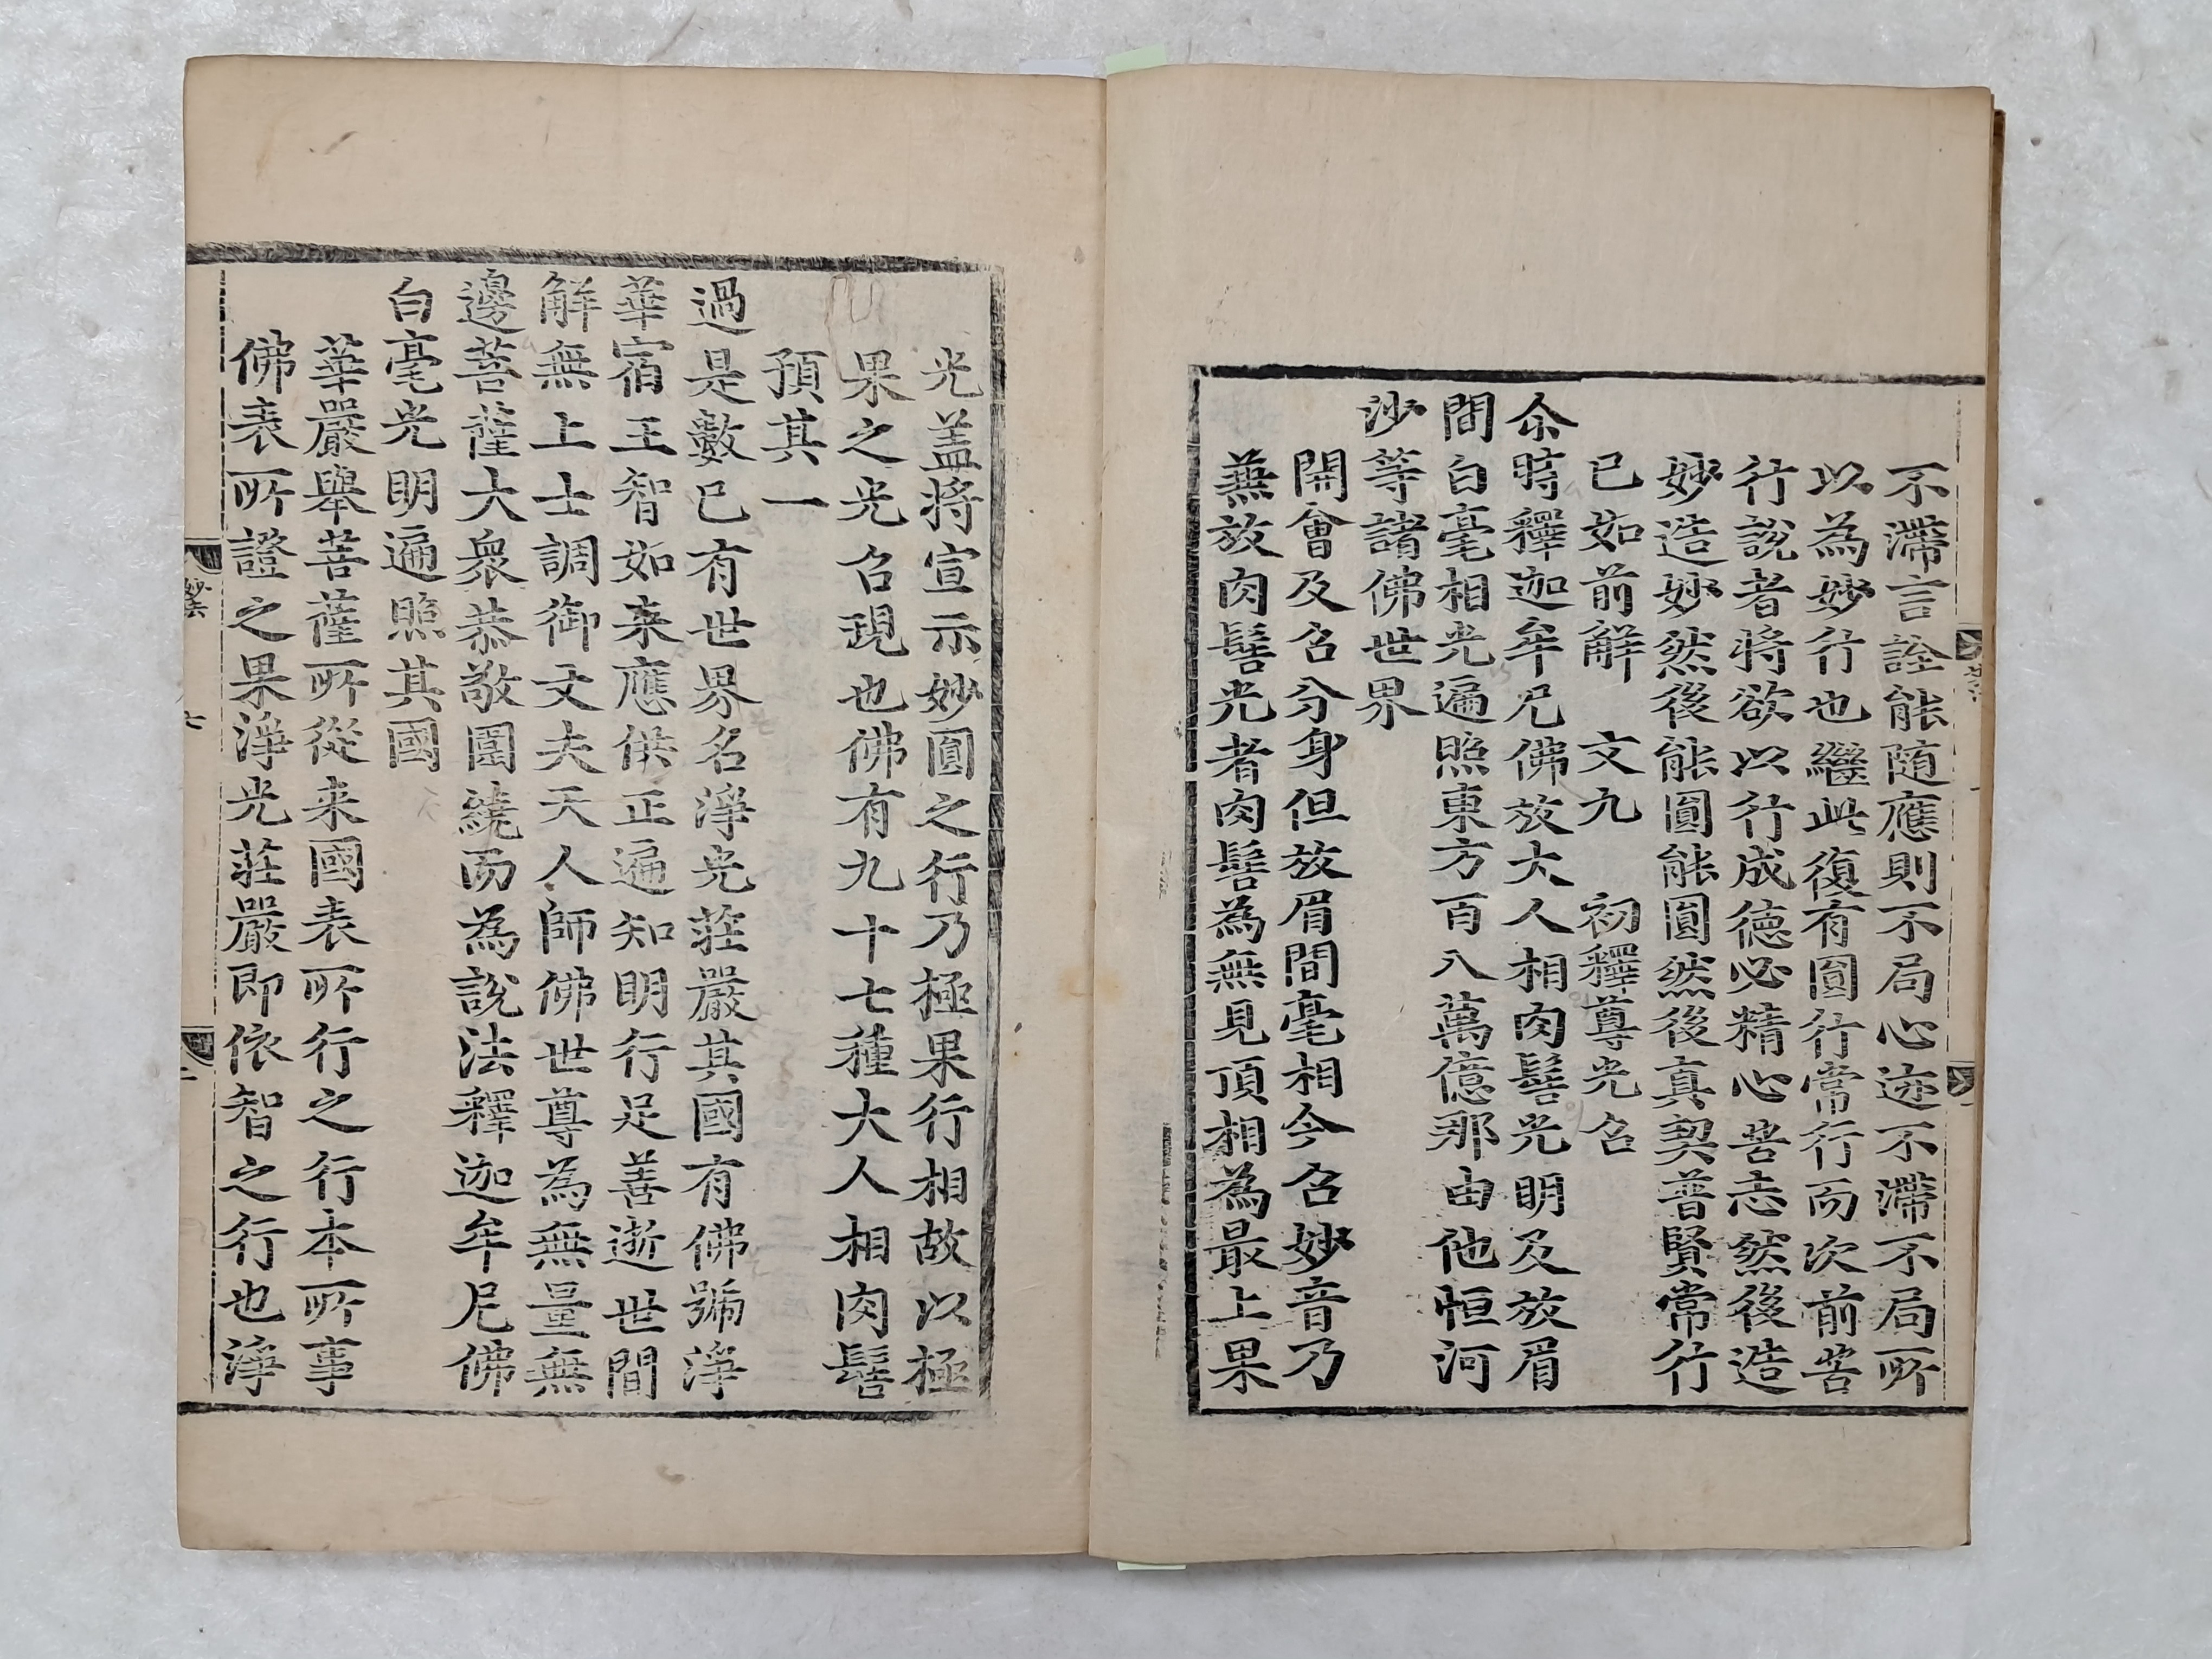 不滯言詮能随應則不局心迹不滯不局所
以為妙行也繼此復有圓行常行而次前苦
行說者將欲以行成德必精心苦志然後造
妙造妙然後能圓能圓然後真契普賢常行
已如前解 文九 初釋尊光召
尒時釋迦牟尼佛放大人相肉髻光明及放眉
間白毫相光遍照東方百八萬億那由他恒河
沙等諸佛世界
開會及召分身但放眉間毫相今召妙音乃
兼放肉髻光者肉髻為無見頂相為最上果
光盖將宣示妙圓之行乃極果行相故以極
果之光召現也佛有九十七種大人相肉髻
預其一
過是數已有世界名淨光莊嚴其國有佛號淨
華宿王智如来應供正遍知明行足善逝世間
解無上士調御丈夫天人師佛世尊為無量無
邊菩薩大衆恭敬圍繞而為說法釋迦牟尼佛
白毫光明遍照其國
華嚴舉菩薩所從来國表所行之行本所事
佛表所證之果淨光莊嚴即依智之行也淨
妙法
七
二